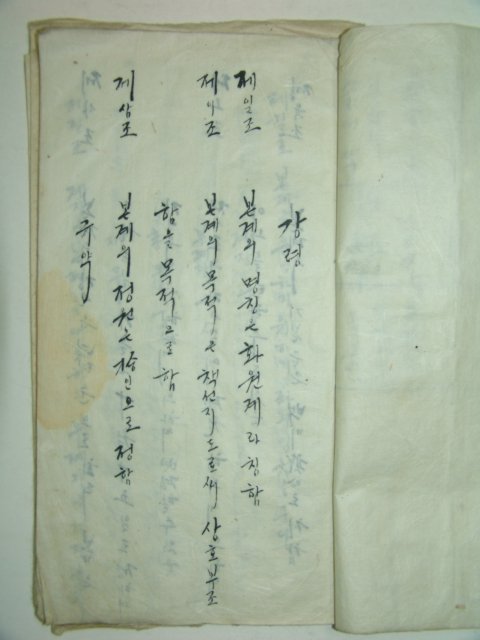 강령
제일조 본계의 명칭은 화원계라 칭함
제이조 본계의 목적은 책선지도로써 상호부조
함을 목적으로 함
제삼조 본계의 정원은 인으로 정함
규약